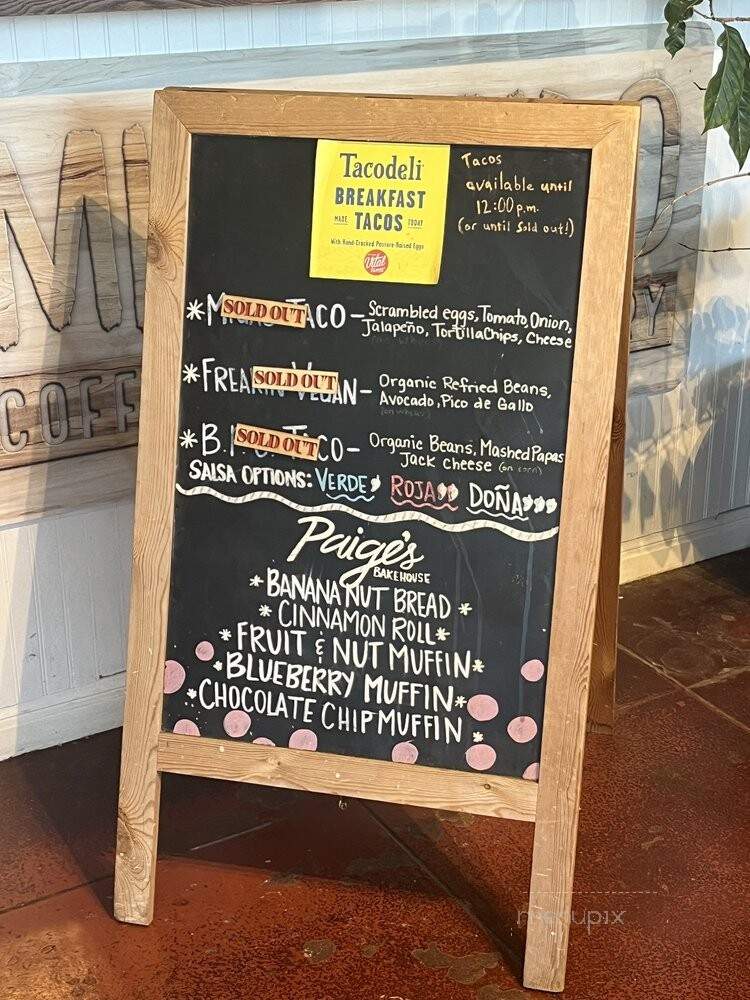 Tacodeli
BREAKFAST
MADE TACOS TODAY
With Hand-Cracked Pasture-Raised Eggs
Vital
Tacos
available until
12:00 p.m.
(or until Sold out!)
*M SOLD OUT TACO - Scrambled eggs, Tomato, Onion,
Jalapeño, Tortilla Chips, Cheese
*FREAKIN SOLD OUT VEGAN - Organic Refried Beans,
Avocado, Pico de Gallo
*B. SOLD OUT CO - Organic Beans, Mashed Papas
Jack cheese (on corn)
SALSA OPTIONS: VERDE ROJA DOÑA
Paige's
BAKEHOUSE
*BANANA NUT BREAD*
*CINNAMON ROLL*
*FRUIT & NUT MUFFIN*
*BLUEBERRY MUFFIN*
*CHOCOLATE CHIP MUFFIN*
COFF
BY
menupix